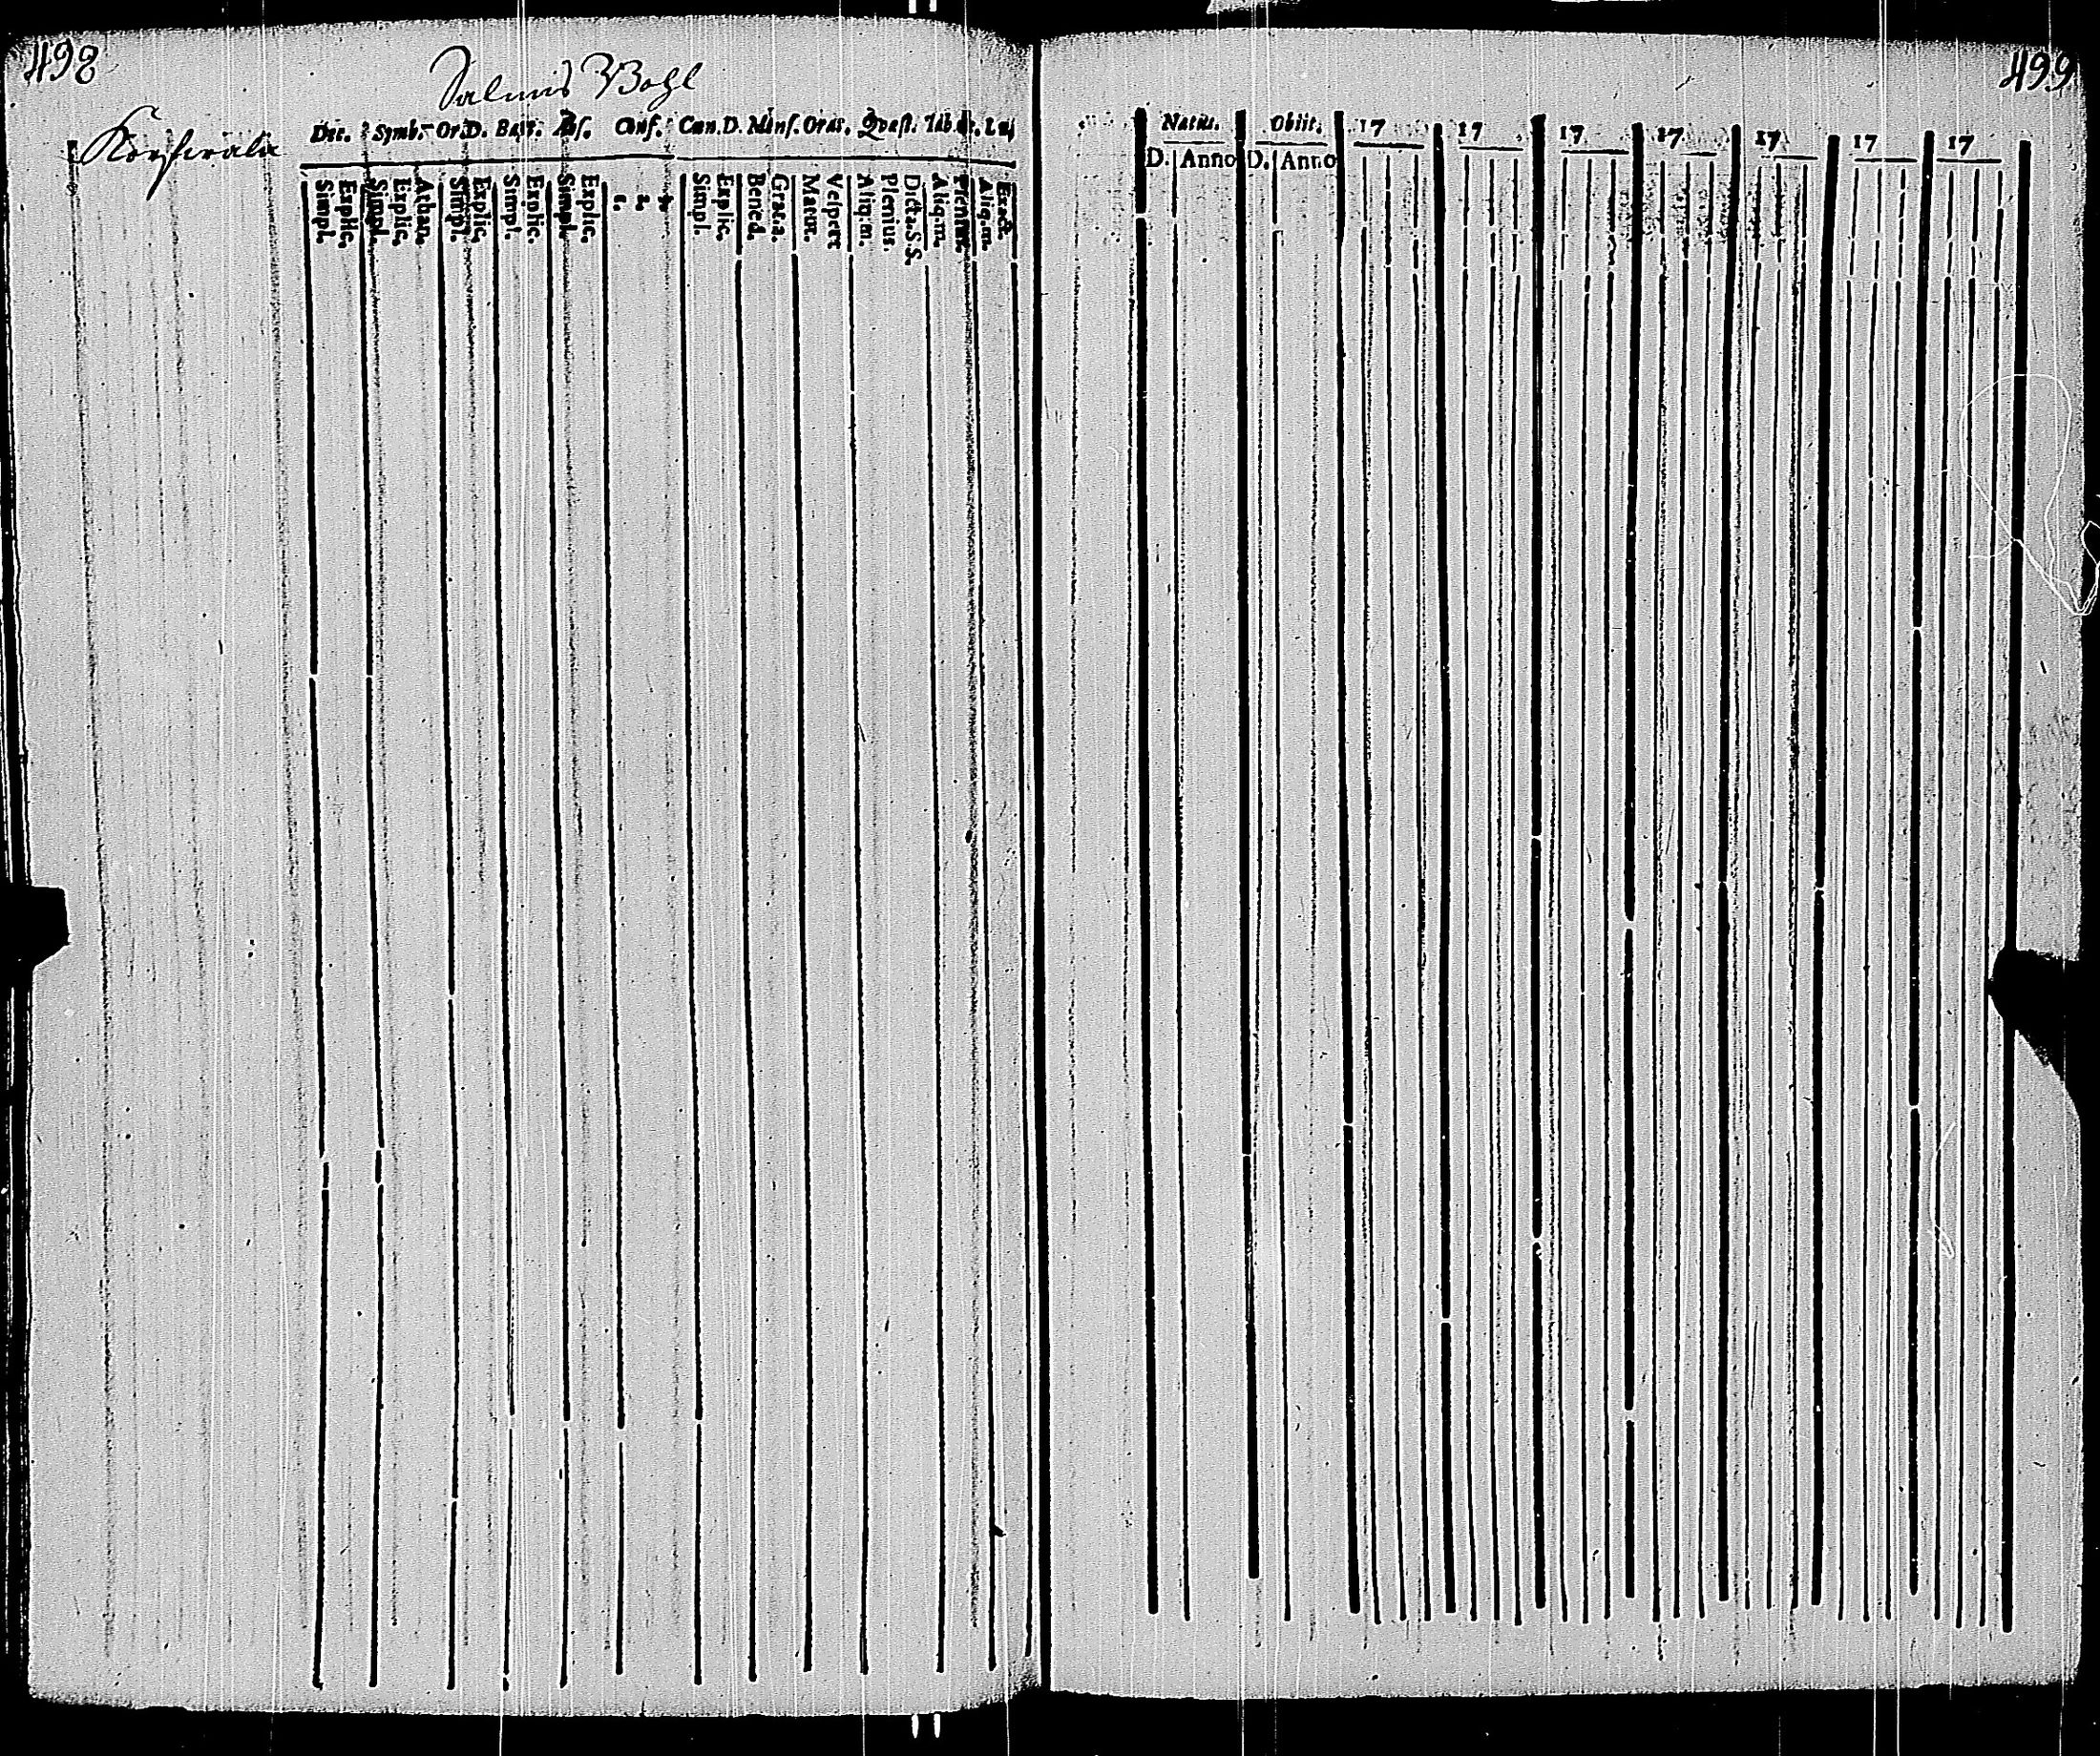 498
Salmis Bohl
Dec. Symb. Or.D. Bapt. Abs. Conf. Cœn.D. Mens. Orat. Qvæst. Tab.œc. Luj
Simpl. Explic. Simpl. Explic. Athan. Simpl. Explic. Simpl. Explic. Simpl. Explic. 1. 2. 3. Simpl. Explic. Bened. Grac.a. Matut. Vespert Aliq.m. Plenius. Dicta.S.S. Aliq.m. Plenius. Aliq.m. Exact.
499
Natus. Obiit. 17 17 17 17 17 17 17
D. Anno D. Anno